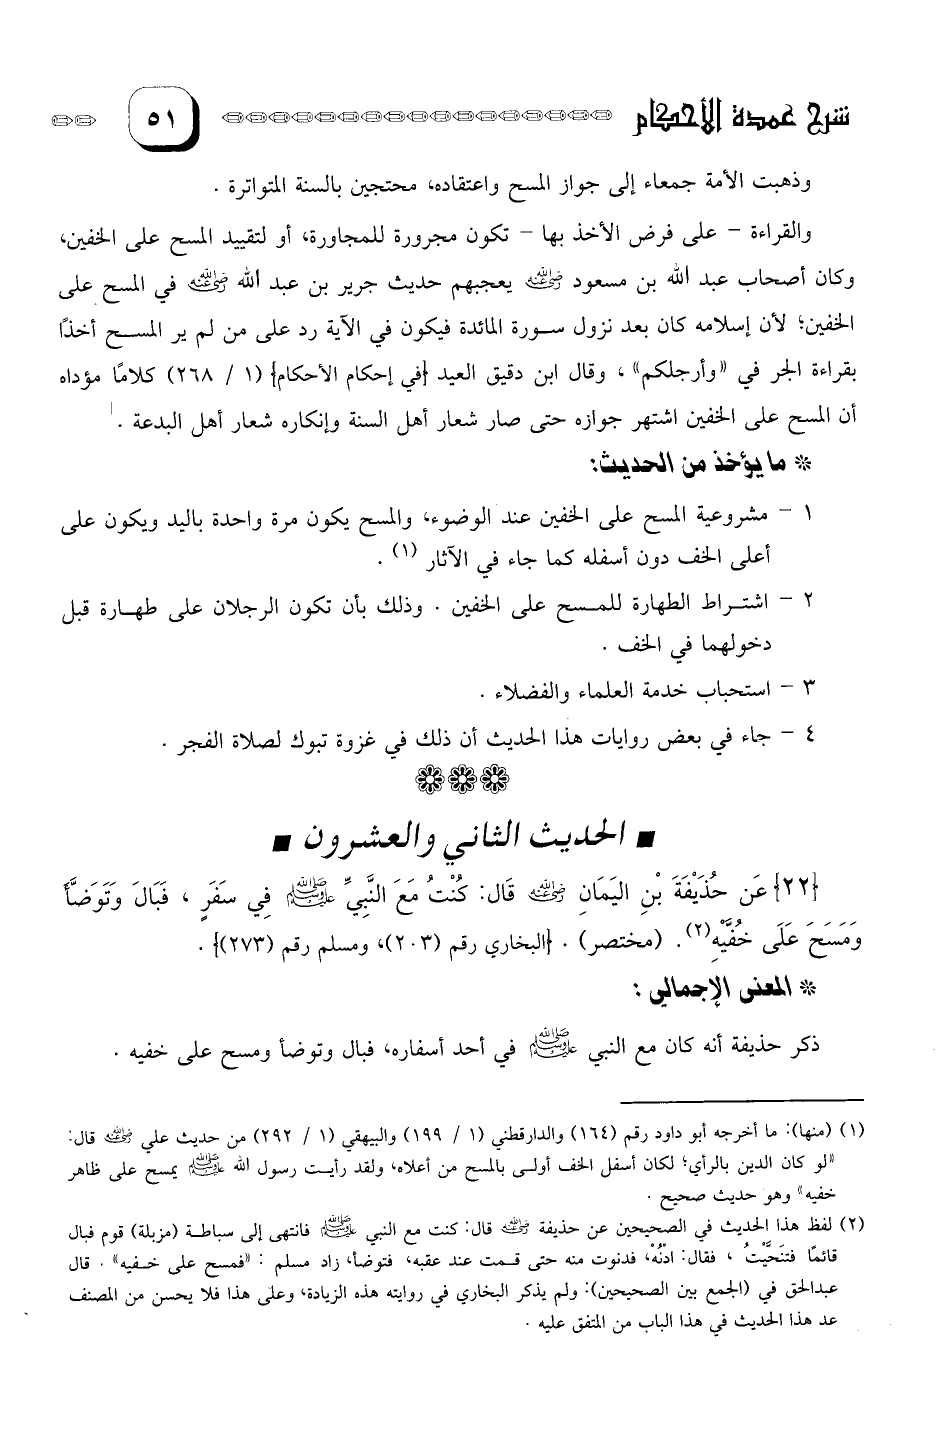 شرح عمدة الأحكام
٥١
وذهبت الأمة جمعاء إلى جواز المسح واعتقاده، محتجين بالسنة المتواترة .
والقراءة – على فرض الأخذ بها – تكون مجرورة للمجاورة، أو لتقييد المسح على الخفين،
وكان أصحاب عبد الله بن مسعود رضي الله عنه يعجبهم حديث جرير بن عبد الله رضي الله عنه في المسح على
الخفين؛ لأن إسلامه كان بعد نزول سورة المائدة فيكون في الآية رد على من لم ير المسح أخذًا
بقراءة الجر في «وأرجلكم» ، وقال ابن دقيق العيد {في إحكام الأحكام} (١ / ٢٦٨) كلامًا مؤداه
أن المسح على الخفين اشتهر جوازه حتى صار شعار أهل السنة وإنكاره شعار أهل البدعة .
* ما يؤخذ من الحديث:
١ – مشروعية المسح على الخفين عند الوضوء، والمسح يكون مرة واحدة باليد ويكون على
أعلى الخف دون أسفله كما جاء في الآثار (١) .
٢ – اشتراط الطهارة للمسح على الخفين . وذلك بأن تكون الرجلان على طهارة قبل
دخولهما في الخف .
٣ – استحباب خدمة العلماء والفضلاء .
٤ – جاء في بعض روايات هذا الحديث أن ذلك في غزوة تبوك لصلاة الفجر .
■ الحديث الثاني والعشرون ■
{٢٢} عَن حُذَيْفَةَ بْنِ اليَمَانِ رضي الله عنه قَال: كُنْتُ مَعَ النَّبِيِّ صلى الله عليه وسلم فِي سفَرٍ ، فَبَالَ وَتَوَضَّأَ
وَمَسَحَ عَلَى خُفَّيْهِ(٢). (مختصر) . {البخاري رقم (٢٠٣)، ومسلم رقم (٢٧٣)} .
* المعنى الإجمالي :
ذكر حذيفة أنه كان مع النبي صلى الله عليه وسلم في أحد أسفاره، فبال وتوضأ ومسح على خفيه .
(١) (منها): ما أخرجه أبو داود رقم (١٦٤) والدارقطني (١ / ١٩٩) والبيهقي (١ / ٢٩٢) من حديث علي رضي الله عنه قال:
«لو كان الدين بالرأي؛ لكان أسفل الخف أولى بالمسح من أعلاه، ولقد رأيت رسول الله صلى الله عليه وسلم يمسح على ظاهر
خفيه» وهو حديث صحيح .
(٢) لفظ هذا الحديث في الصحيحين عن حذيفة رضي الله عنه قال: كنت مع النبي صلى الله عليه وسلم فانتهى إلى سباطة (مزبلة) قوم فبال
قائمًا فتَنَحَّيْتُ ، فقال: ادْنُهْ، فدنوت منه حتى قمت عند عقبه، فتوضأ، زاد مسلم : «فمسح على خفيه» . قال
عبدالحق في (الجمع بين الصحيحين): ولم يذكر البخاري في روايته هذه الزيادة، وعلى هذا فلا يحسن من المصنف
عد هذا الحديث في هذا الباب من المتفق عليه .